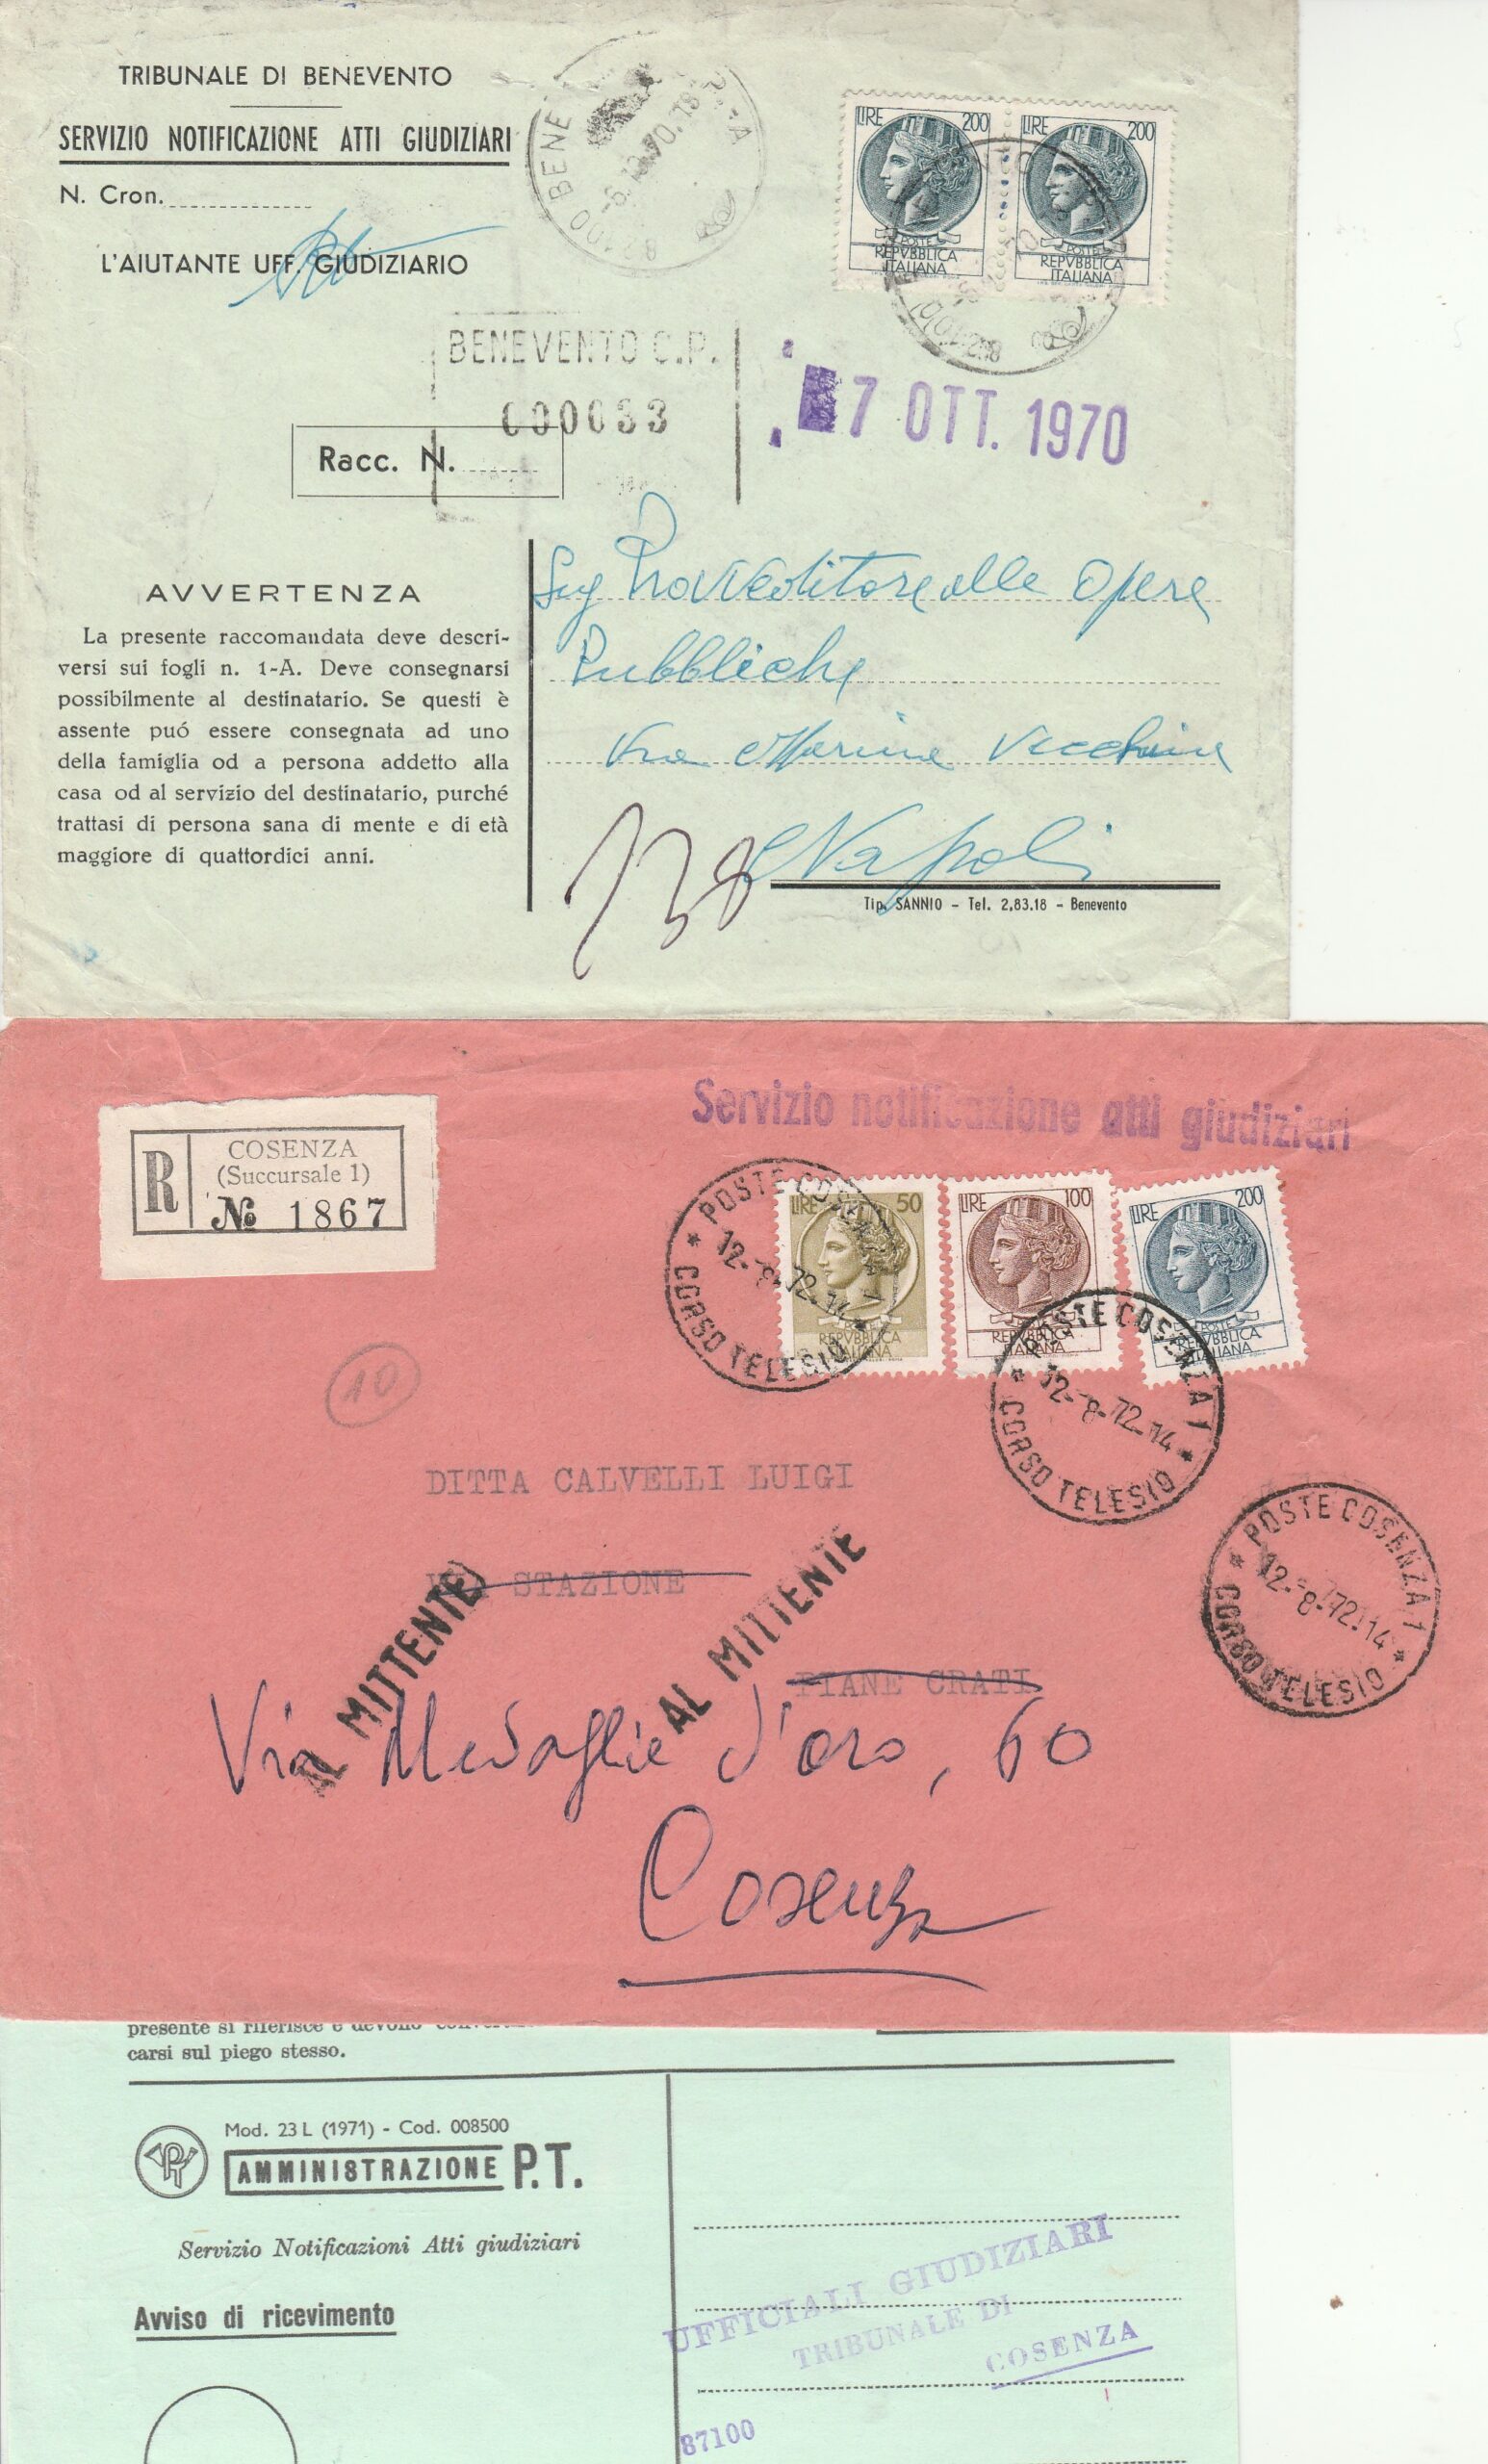 TRIBUNALE DI BENEVENTO
SERVIZIO NOTIFICAZIONE ATTI GIUDIZIARI
N. Cron.
L'AIUTANTE UFF. GIUDIZIARIO
LIRE 200
POSTE
REPVBBLICA
ITALIANA
LIRE 200
POSTE
REPVBBLICA
ITALIANA
BENEVENTO C.P.
000033
Racc. N.
7 OTT. 1970
AVVERTENZA
La presente raccomandata deve descri-
versi sui fogli n. 1-A. Deve consegnarsi
possibilmente al destinatario. Se questi è
assente puó essere consegnata ad uno
della famiglia od a persona addetto alla
casa od al servizio del destinatario, purché
trattasi di persona sana di mente e di età
maggiore di quattordici anni.
Sig Provveditore alle Opere
Pubbliche
Via Marina Vecchia
138 Napoli
Tip. SANNIO - Tel. 2,83.18 - Benevento
Servizio notificazione atti giudiziari
R
COSENZA
(Succursale 1)
№ 1867
LIRE 50
POSTE
REPVBBLICA
ITALIANA
LIRE 100
REPVBBLICA
ITALIANA
LIRE 200
POSTE
REPVBBLICA
ITALIANA
POSTE COSENZA 1
12-8-72.14
CORSO TELESIO
POSTE COSENZA 1
12-8-72.14
CORSO TELESIO
POSTE COSENZA 1
12-8-72.14
CORSO TELESIO
10
DITTA CALVELLI LUIGI
VIA STAZIONE
PIANE CRATI
AL MITTENTE
AL MITTENTE
Via Medaglie d'oro, 60
Cosenza
presente si riferisce e devono
carsi sul piego stesso.
Mod. 23 L (1971) - Cod. 008500
AMMINISTRAZIONE P.T.
Servizio Notificazioni Atti giudiziari
Avviso di ricevimento
UFFICIALI GIUDIZIARI
TRIBUNALE DI
COSENZA
87100